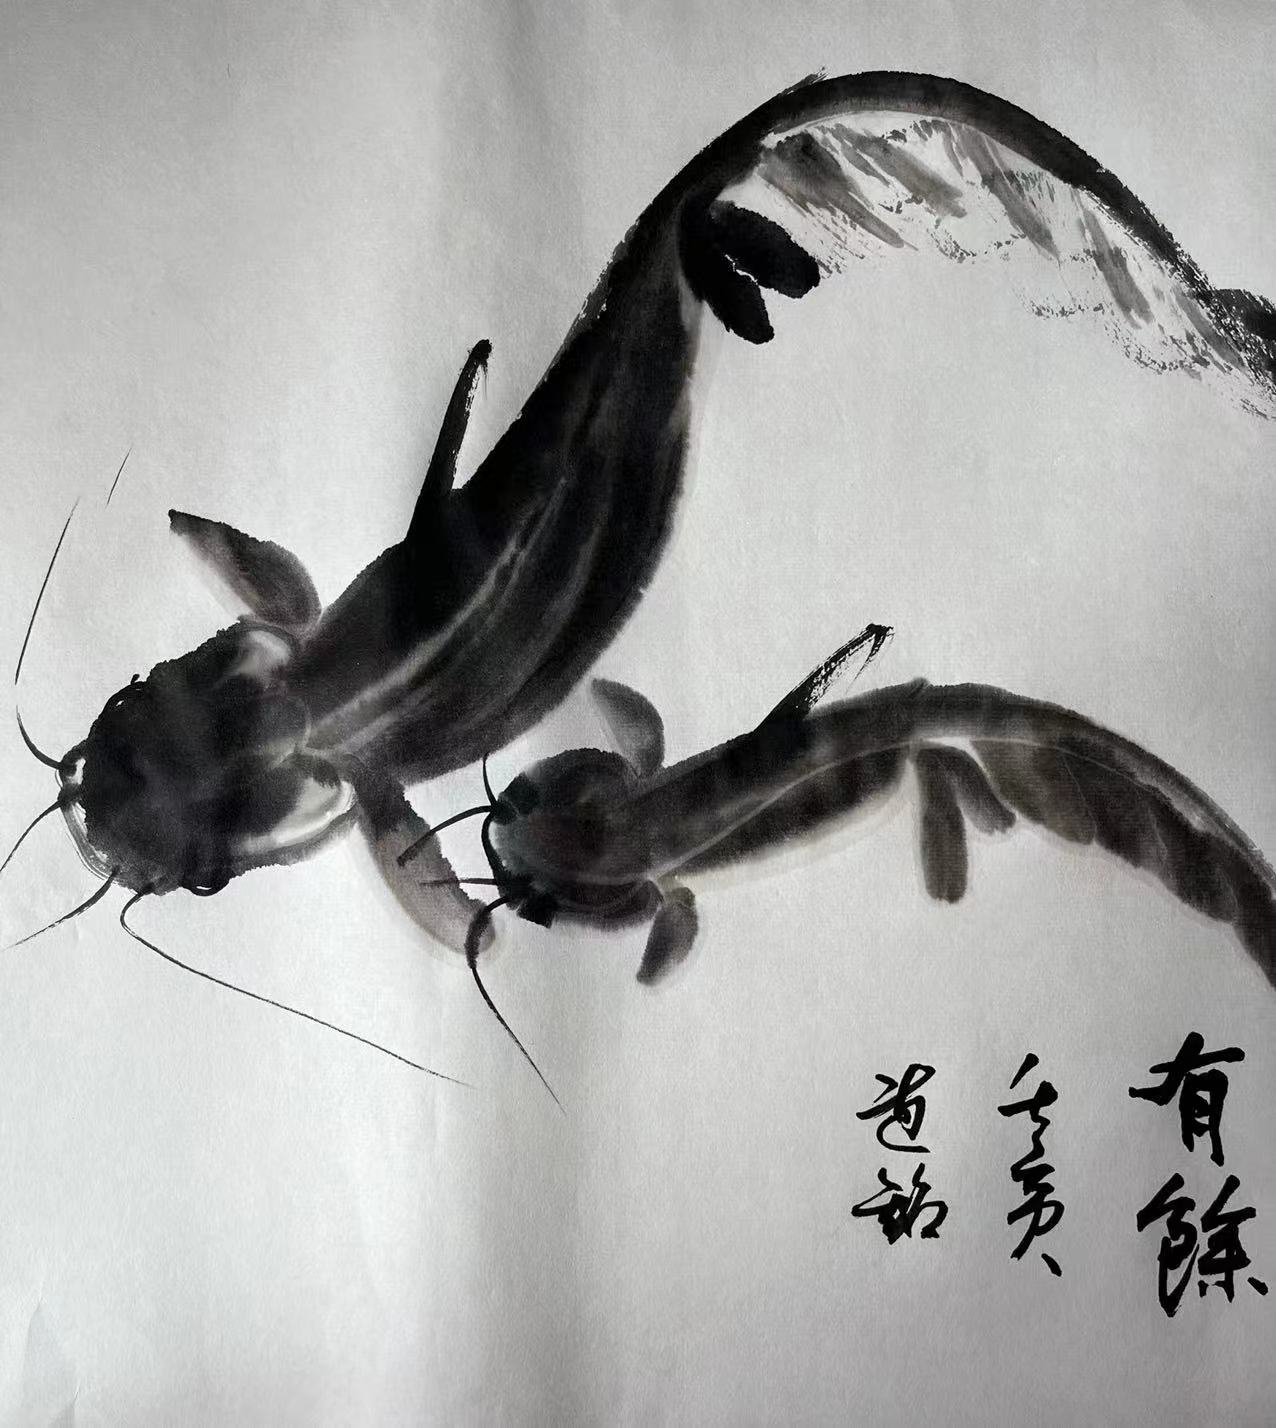 有餘
壬寅
道銘